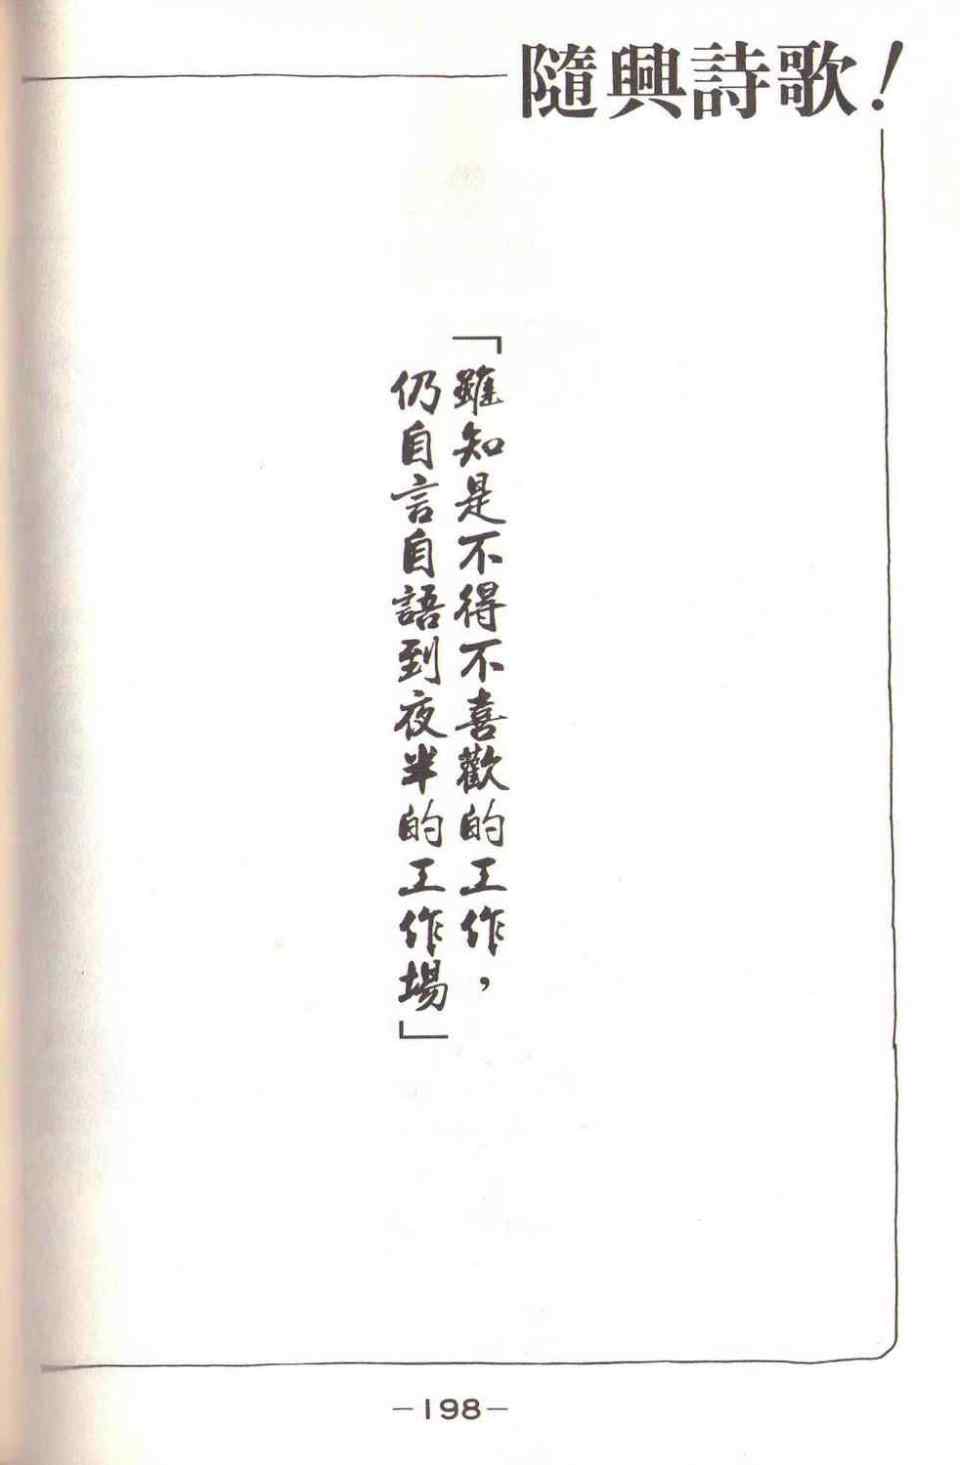 隨興詩歌！
「雖知是不得不喜歡的工作，
仍自言自語到夜半的工作場」
—198—